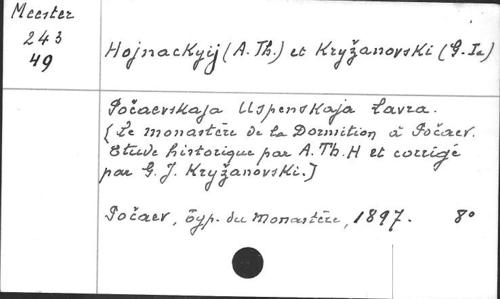 Meester
243
49
Hojnackyij (A. Th.) et Kryžanovski (G. Ia)
Počaevskaja Uspenskaja Lavra.
[Le monastère de la Dormition à Počaev.
Etude historique par A. Th. H et corrigé
par G. J. Kryžanovski.]
Počaev, Typ. du Monastère, 1897. 8°